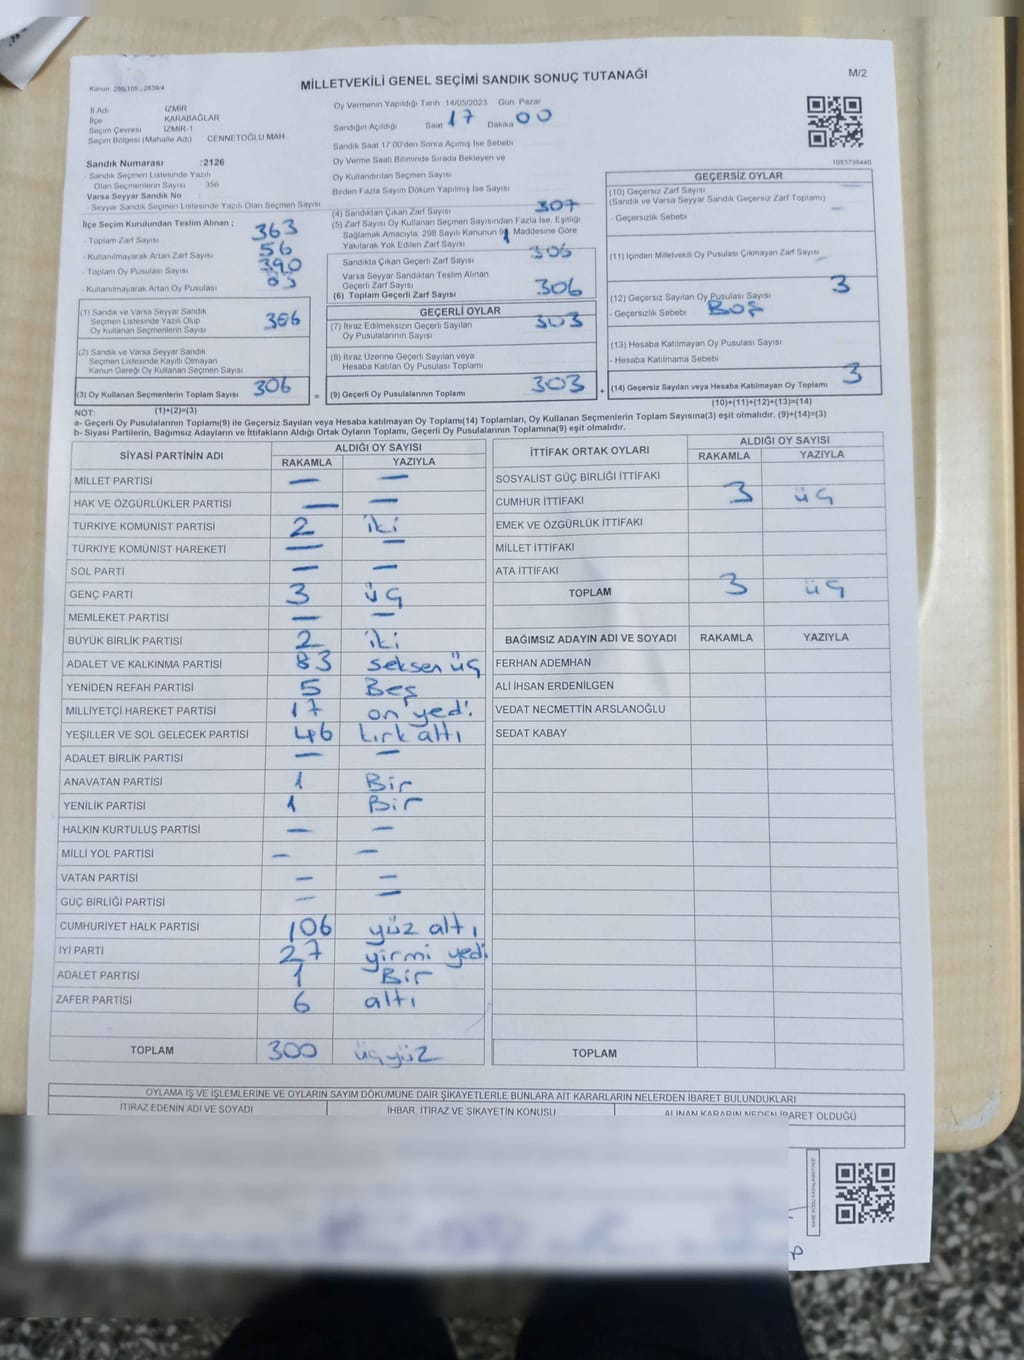 MİLLETVEKİLİ GENEL SEÇİMİ SANDIK SONUÇ TUTANAĞI
M/2
Kanun 298/105, 2839/4
İl Adı İZMİR
İlçe KARABAĞLAR
Seçim Çevresi İZMİR-1
Seçim Bölgesi (Mahalle Adı) CENNETOĞLU MAH
Sandık Numarası :2126
- Sandık Seçmen Listesinde Yazılı
Olan Seçmenlerin Sayısı 356
Varsa Seyyar Sandık No
- Seyyar Sandık Seçmen Listesinde Yazılı Olan Seçmen Sayısı
Oy Vermenin Yapıldığı Tarih 14/05/2023 Gün Pazar
Sandığın Açıldığı Saat 17 Dakika 00
Sandık Saat 17 00'den Sonra Açılmış İse Sebebi
Oy Verme Saati Bitiminde Sırada Bekleyen ve
Oy Kullandırılan Seçmen Sayısı
Birden Fazla Sayım Döküm Yapılmış İse Sayısı
1093798440
İlçe Seçim Kurulundan Teslim Alınan ;
- Toplam Zarf Sayısı 363
- Kullanılmayarak Artan Zarf Sayısı 56
- Toplam Oy Pusulası Sayısı 390
- Kullanılmayarak Artan Oy Pusulası
(1) Sandık ve Varsa Seyyar Sandık
Seçmen Listesinde Yazılı Olup
Oy Kullanan Seçmenlerin Sayısı
(2) Sandık ve Varsa Seyyar Sandık
Seçmen Listesinde Kayıtlı Olmayan
Kanun Gereği Oy Kullanan Seçmen Sayısı
(3) Oy Kullanan Seçmenlerin Toplam Sayısı 306
(1)+(2)=(3)
(4) Sandıktan Çıkan Zarf Sayısı 307
(5) Zarf Sayısı Oy Kullanan Seçmen Sayısından Fazla İse, Eşitliği
Sağlamak Amacıyla, 298 Sayılı Kanunun Maddesine Göre
Yakılarak Yok Edilen Zarf Sayısı 1
Sandıkta Çıkan Geçerli Zarf Sayısı 306
Varsa Seyyar Sandıktan Teslim Alınan
Geçerli Zarf Sayısı
(6) Toplam Geçerli Zarf Sayısı 306
GEÇERLİ OYLAR
(7) İtiraz Edilmeksizin Geçerli Sayılan
Oy Pusulalarının Sayısı 303
(8) İtiraz Üzerine Geçerli Sayılan veya
Hesaba Katılan Oy Pusulası Toplamı
= (9) Geçerli Oy Pusulalarının Toplamı 303 +
GEÇERSİZ OYLAR
(10) Geçersiz Zarf Sayısı
(Sandık ve Varsa Seyyar Sandık Geçersiz Zarf Toplamı)
- Geçersizlik Sebebi
(11) İçinden Milletvekili Oy Pusulası Çıkmayan Zarf Sayısı
(12) Geçersiz Sayılan Oy Pusulası Sayısı 3
- Geçersizlik Sebebi BOŞ
(13) Hesaba Katılmayan Oy Pusulası Sayısı
- Hesaba Katılmama Sebebi
(14) Geçersiz Sayılan veya Hesaba Katılmayan Oy Toplamı 3
(10)+(11)+(12)+(13)=(14)
NOT:
a- Geçerli Oy Pusulalarının Toplamı(9) ile Geçersiz Sayılan veya Hesaba katılmayan Oy Toplamı(14) Toplamları, Oy Kullanan Seçmenlerin Toplam Sayısına(3) eşit olmalıdır. (9)+(14)=(3)
b- Siyasi Partilerin, Bağımsız Adayların ve İttifakların Aldığı Ortak Oyların Toplamı, Geçerli Oy Pusulalarının Toplamına(9) eşit olmalıdır.
SİYASİ PARTİNİN ADI ALDIĞI OY SAYISI
RAKAMLA YAZIYLA
MİLLET PARTİSİ — —
HAK VE ÖZGÜRLÜKLER PARTİSİ — —
TÜRKİYE KOMÜNİST PARTİSİ 2 iki
TÜRKİYE KOMÜNİST HAREKETİ — —
SOL PARTİ — —
GENÇ PARTİ 3 üç
MEMLEKET PARTİSİ — —
BÜYÜK BİRLİK PARTİSİ 2 iki
ADALET VE KALKINMA PARTİSİ 83 seksen üç
YENİDEN REFAH PARTİSİ 5 Beş
MİLLİYETÇİ HAREKET PARTİSİ 17 on yedi
YEŞİLLER VE SOL GELECEK PARTİSİ 46 kırk altı
ADALET BİRLİK PARTİSİ — —
ANAVATAN PARTİSİ 1 Bir
YENİLİK PARTİSİ 1 Bir
HALKIN KURTULUŞ PARTİSİ — —
MİLLİ YOL PARTİSİ — —
VATAN PARTİSİ — —
GÜÇ BİRLİĞİ PARTİSİ — —
CUMHURİYET HALK PARTİSİ 106 yüz altı
İYİ PARTİ 27 yirmi yedi
ADALET PARTİSİ 1 Bir
ZAFER PARTİSİ 6 altı
TOPLAM 300 üçyüz
İTTİFAK ORTAK OYLARI ALDIĞI OY SAYISI
RAKAMLA YAZIYLA
SOSYALİST GÜÇ BİRLİĞİ İTTİFAKI
CUMHUR İTTİFAKI 3 üç
EMEK VE ÖZGÜRLÜK İTTİFAKI
MİLLET İTTİFAKI
ATA İTTİFAKI
TOPLAM 3 üç
BAĞIMSIZ ADAYIN ADI VE SOYADI RAKAMLA YAZIYLA
FERHAN ADEMHAN
ALİ İHSAN ERDENİLGEN
VEDAT NECMETTİN ARSLANOĞLU
SEDAT KABAY
TOPLAM
OYLAMA İŞ VE İŞLEMLERİNE VE OYLARIN SAYIM DÖKÜMÜNE DAİR ŞİKAYETLERLE BUNLARA AİT KARARLARIN NELERDEN İBARET BULUNDUKLARI
İTİRAZ EDENİN ADI VE SOYADI İHBAR, İTİRAZ VE ŞİKAYETİN KONUSU ALINAN KARARIN NEDEN İBARET OLDUĞU